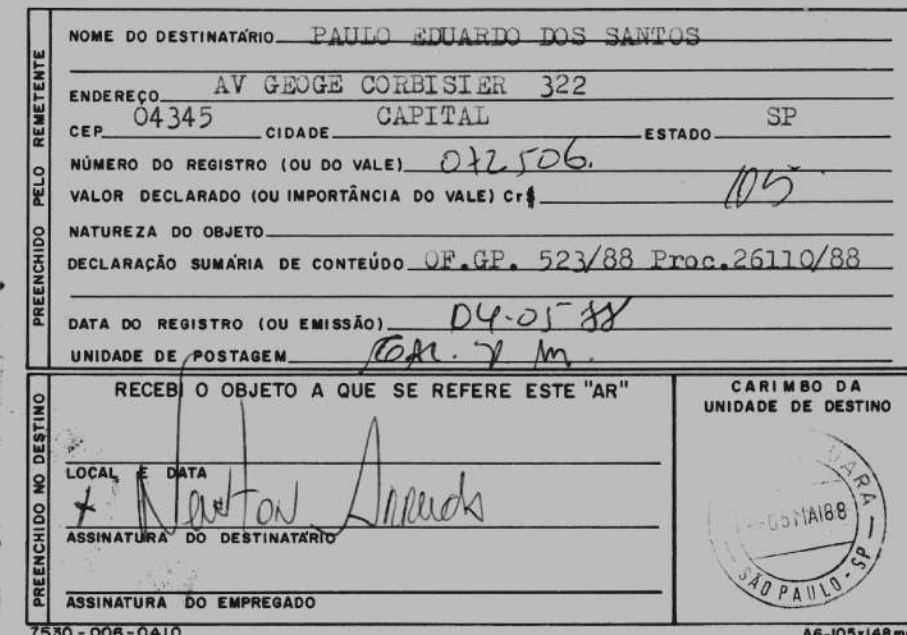 NOME DO DESTINATÁRIO PAULO EDUARDO DOS SANTOS
ENDEREÇO AV GEOGE CORBISIER 322
CEP 04345 CIDADE CAPITAL ESTADO SP
NÚMERO DO REGISTRO (OU DO VALE) 072506.
VALOR DECLARADO (OU IMPORTÂNCIA DO VALE) Cr$ 105
NATUREZA DO OBJETO
DECLARAÇÃO SUMÁRIA DE CONTEÚDO OF.GP. 523/88 Proc.26110/88
DATA DO REGISTRO (OU EMISSÃO) 04-05-88
UNIDADE DE POSTAGEM
PREENCHIDO PELO REMETENTE
RECEBI O OBJETO A QUE SE REFERE ESTE "AR"
LOCAL E DATA
Newton
ASSINATURA DO DESTINATÁRIO
ASSINATURA DO EMPREGADO
PREENCHIDO NO DESTINO
CARIMBO DA
UNIDADE DE DESTINO
05 MAI 88
SÃO PAULO - SP
7530-006-0410
A6-105x148m